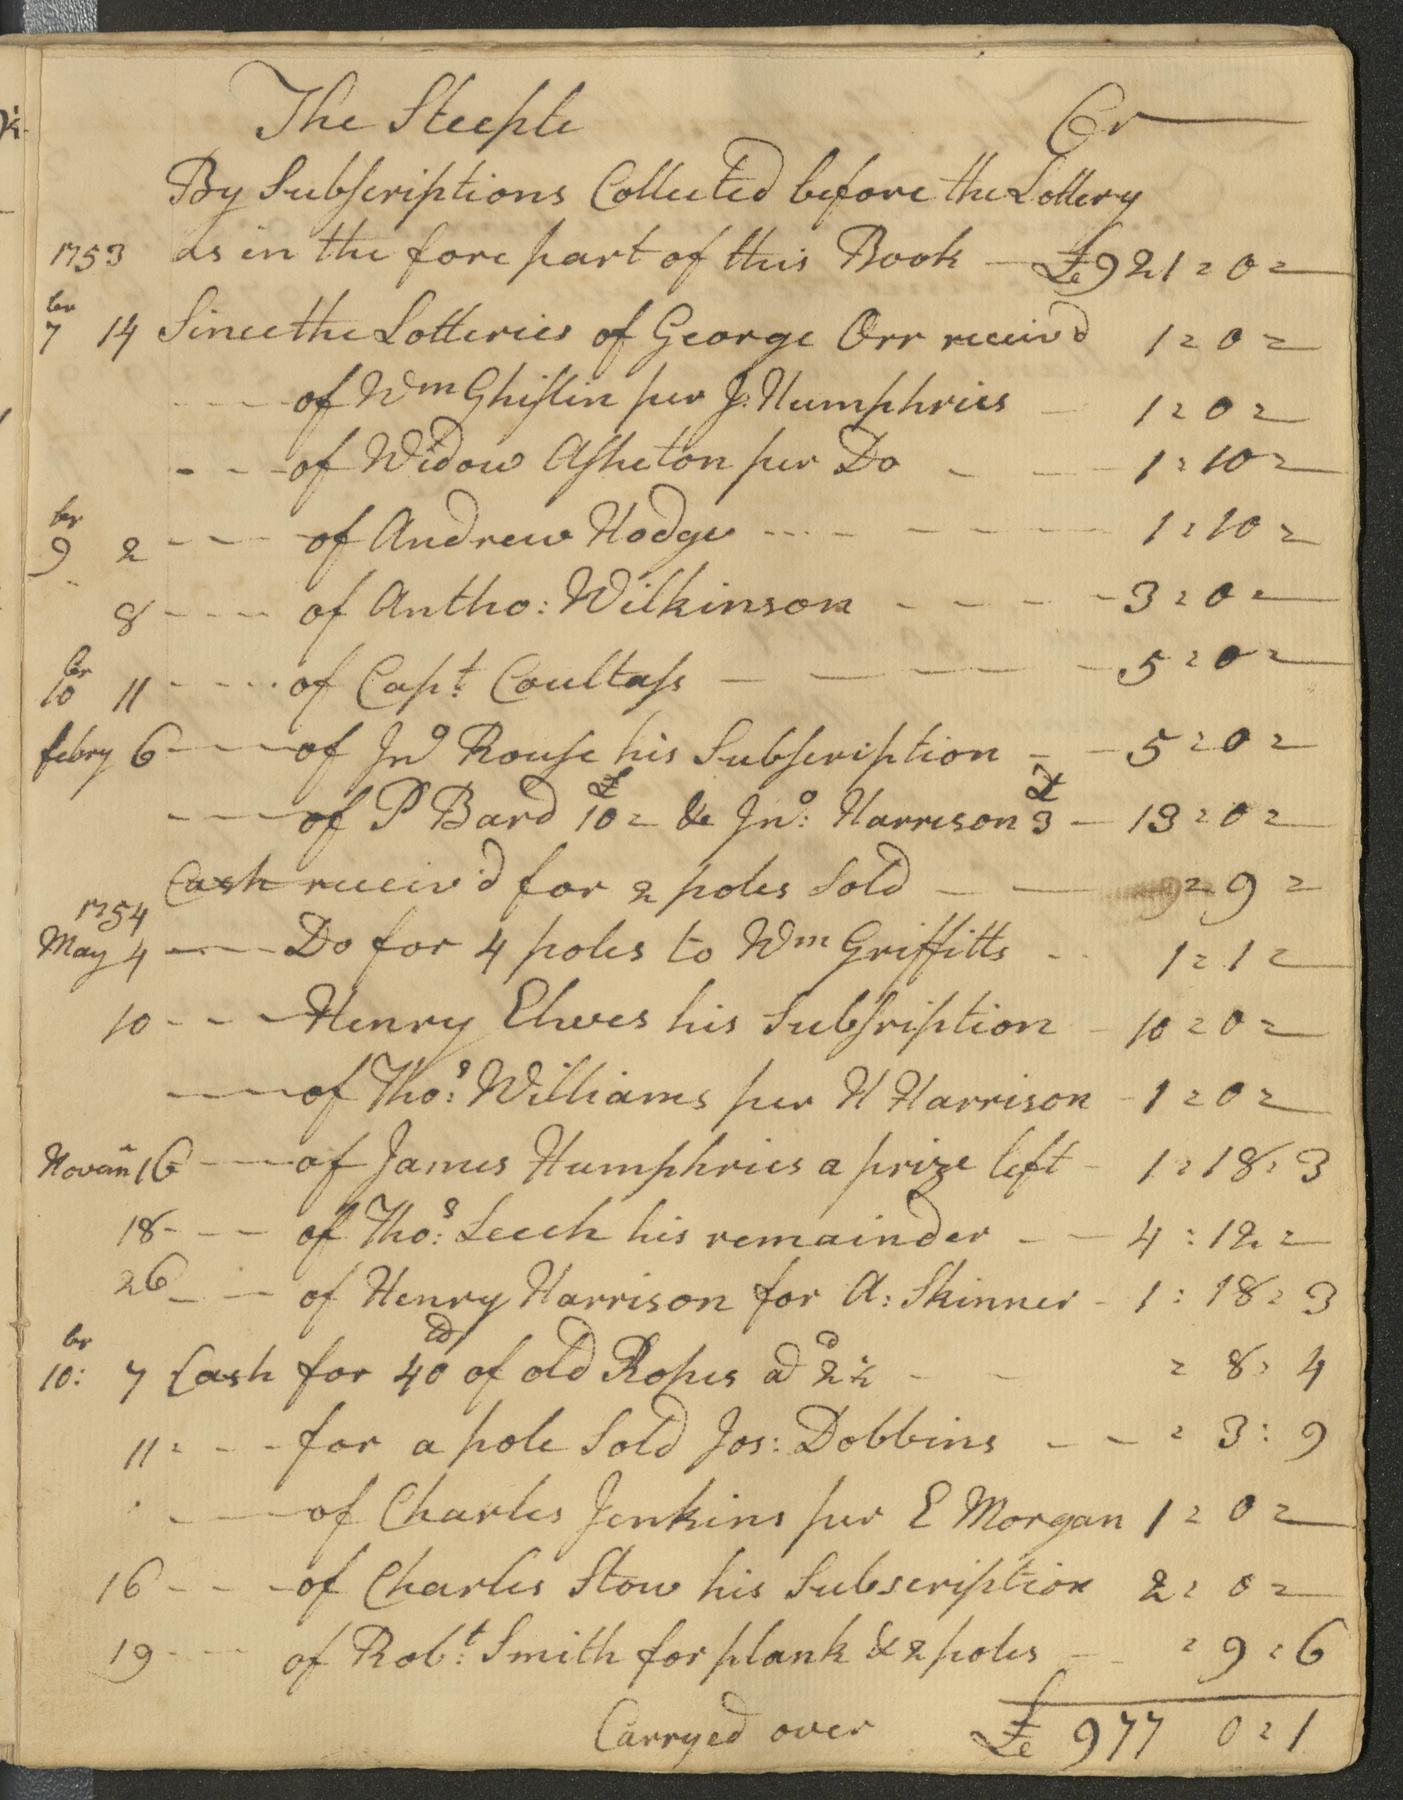 The Steeple Cr
By Subscriptions Collected before the Lottery
1753 as in the fore part of this Book — £921 = 0 =
7br 14 Since the Lotteries of George Orr receiv'd 1 = 0 =
of Wm Ghislin per J: Humphries 1 = 0 =
of Widow Asheton per Do 1 : 10 =
9br 2 of Andrew Hodge 1 : 10 =
8 of Antho: Wilkinson 3 = 0 =
10br 11 of Capt. Coultass 5 = 0 =
febry 6 of Jno Rouse his Subscription 5 = 0 =
of P Bard £10 = & Jno: Harrison £3 — 13 = 0 =
Cash receiv'd for 2 poles Sold = 9 =
1754
May 4 Do for 4 poles to Wm Griffitts 1 = 1 =
10 Henry Elwes his Subsription 10 = 0 =
of Thos: Williams per H Harrison 1 = 0 =
Novem 16 of James Humphries a prize left 1 : 18 : 3
18 of Thos: Leech his remainder 4 : 12 =
26 of Henry Harrison for A: Skinner 1 : 18 = 3
10br: 7 Cash for 40 of old Ropes ad 2½d = 8 : 4
11 for a pole Sold Jos: Dobbins = 3 : 9
of Charles Jenkins per E Morgan 1 = 0 =
16 of Charles Stow his Subscription 2 : 0 =
19 of Robt: Smith for plank & 2 poles = 9 : 6
Carryed over £ 977 0 = 1